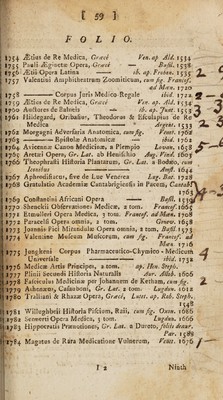 [ 59 ]
FOLIO.
1754 Ætius de Re Medica, Græcè Ven. ap. Ald. 1534
1755 Pauli Æginetæ Opera, Græcè Basil. 1538
1756 Ætii Opera Latina ib. ap. Froben. 1535
1757 Valentini Amphitheatrum Zootomicum, cum fig. Francof. ad Mæn. 1720
1758 Corpus Juris Medico-Legale ibid. 1722
1759 Ætios de Re Medica, Græcè Ven. ap. Ald. 1534
1760 Auctores de Balneis ib. ap. Junt. 1553
1761 Hildegard, Oribasius, Theodorus & Esculapius de Re Medica Argen. 1533
1762 Morgagni Adversaria Anatomica, cum fig. Venet. 1762
1763 Epistolæ Anatomicæ ibid.
1764 Avicennæ Canon Medicinæ, a Plempio Lovan. 1658
1765 Aretæi Opera, Gr. Lat. ab Henischio Aug. Vind. 1603
1766 Theophrasti Historia Plantarum, Gr. Lat. a Bodæo, cum Iconibus Amst. 1644
1767 Aphrodisiacus, sive de Lue Venerea Lug. Bat. 1728
1768 Gratulatio Academiæ Cantabrigiensis in Pacem, Cantab.
1769 Constantini Africani Opera Basil. 1539
1770 Shenckii Observationes Medicæ, 2 tom. Francof. 1600
1771 Etmulleri Opera Medica, 3 tom. Francof. ad Mæn. 1708
1772 Paracelsi Opera omnia, 2 tom. Genev. 1658
1773 Joannis Fiei Mirandulæ Opera omnia, 2 tom. Basil. 1573
1774 Valentini Museum Museorum, cum fig. Francof. ad Mæn. 1716
1775 Jungkeni Corpus Pharmaceutico-Chymico-Medicum Universale ibid. 1732
1776 Medicæ Artis Principes, 2 tom. ap. Hen. Steph.
1777 Plinii Secundi Historia Naturalis Aur. Allob. 1606
1778 Fasciculus Medicinæ per Johannem de Ketham, cum fig.
1779 Athenæus, Casauboni, Gr. Lat. 2 tom. Lugdun. 1612
1780 Tralliani & Rhazæ Opera, Græcè, Lutet. ap. Rob. Steph. 1548
1781 Willoghbeii Historia Piscium, Raii, cum fig. Oxon. 1686
1782 Sennerti Opera Medica, 3 tom. Lugdun. 1666
1783 Hippocratis Prænotiones, Gr. Lat. a Dureto, foliis deaur. Par. 1588
1784 Magatus de Rara Medicatione Vulnerum, Venet. 1676
I 2 Ninth